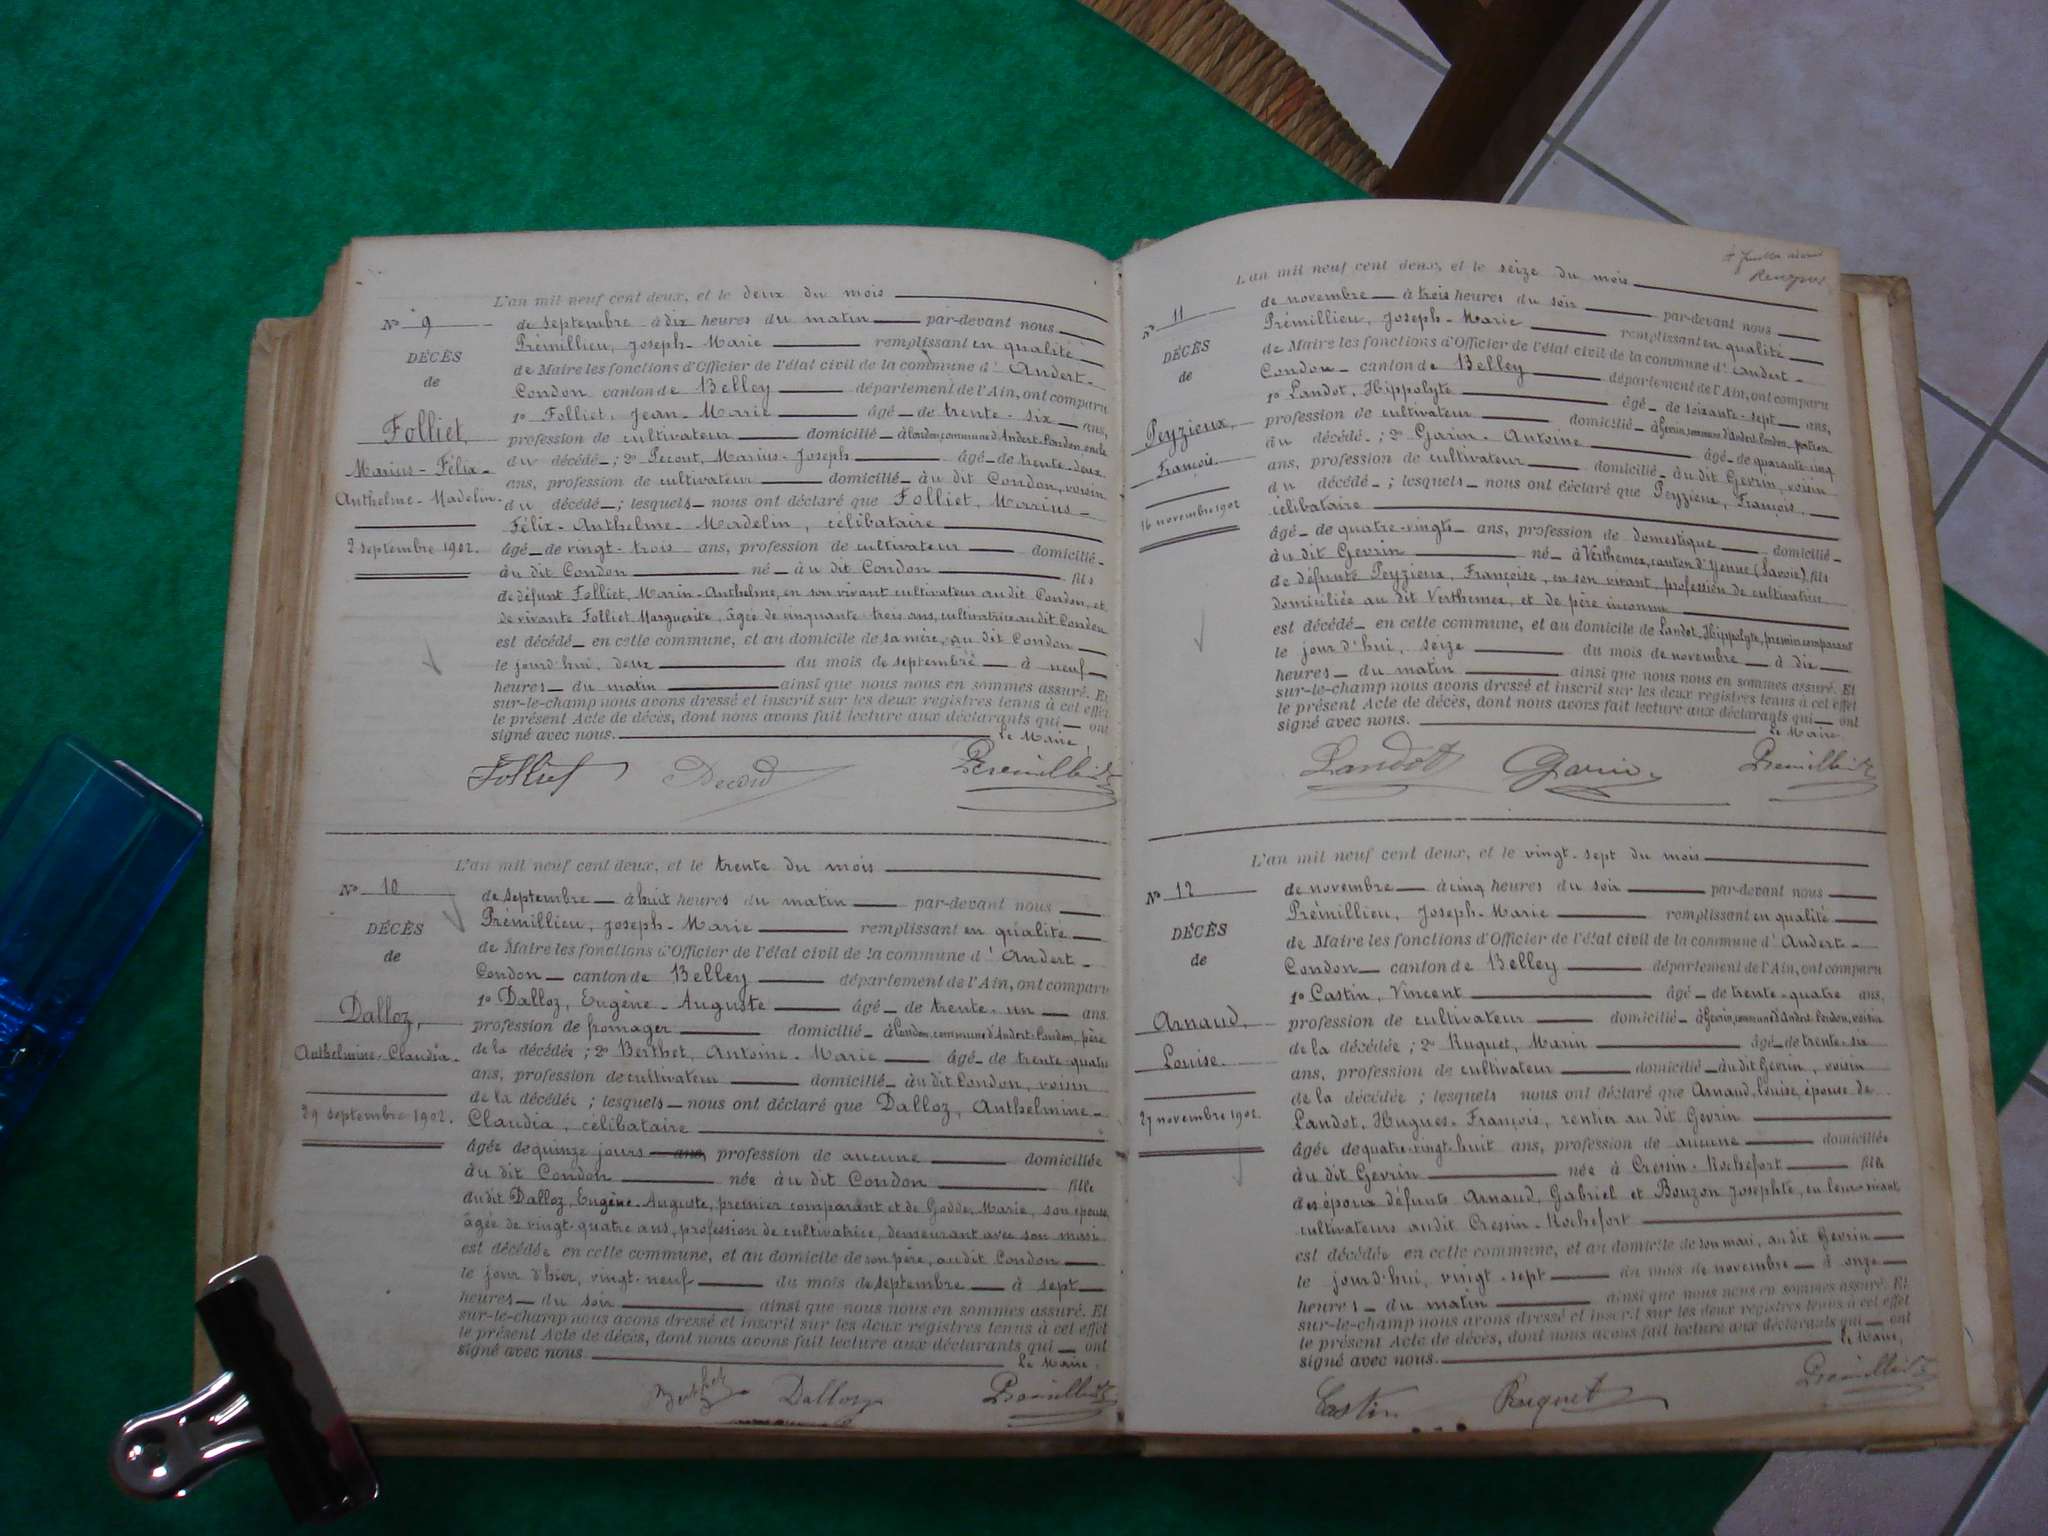 L'an mil neuf cent deux, et le deux du mois
N° 9
de septembre à dix heures du matin par-devant nous
Prémillieu, Joseph-Marie remplissant en qualité
DÉCÈS
de Maire les fonctions d'Officier de l'état civil de la commune d'Andert-
de
Condon canton de Belley département de l'Ain, ont comparu
1° Folliet, Jean-Marie âgé de trente-six ans,
Folliet,
profession de cultivateur domicilié à Condon, commune d'Andert-Condon, oncle
du décédé ; 2° Pecout, Marius-Joseph âgé de trente-deux
Marius-Félix-
ans, profession de cultivateur domicilié au dit Condon, voisin
Anthelme-Madelin.
du décédé ; lesquels nous ont déclaré que Folliet, Marius-
Félix-Anthelme-Madelin, célibataire
2 septembre 1902.
âgé de vingt-trois ans, profession de cultivateur domicilié
au dit Condon né au dit Condon fils
de défunt Folliet, Marin-Anthelme, en son vivant cultivateur au dit Condon, et
de vivante Folliet Marguerite, âgée de cinquante-trois ans, cultivatrice au dit Condon
est décédé en cette commune, et au domicile de sa mère, au dit Condon
le jourd'hui, deux du mois de septembre à neuf
heures du matin ainsi que nous nous en sommes assuré. Et
sur-le-champ nous avons dressé et inscrit sur les deux registres tenus à cet effet
le présent Acte de décès, dont nous avons fait lecture aux déclarants qui ont
signé avec nous. Le Maire,
Folliet Prémillieu
L'an mil neuf cent deux, et le trente du mois
N° 10
de septembre à huit heures du matin par-devant nous
Prémillieu, Joseph-Marie remplissant en qualité
DÉCÈS
de Maire les fonctions d'Officier de l'état civil de la commune d'Andert-
de
Condon canton de Belley département de l'Ain, ont comparu
1° Dalloz, Eugène-Auguste âgé de trente-un ans
Dalloz,
profession de fromager domicilié à Condon, commune d'Andert-Condon, père
de la décédée ; 2° Berthet, Antoine-Marie âgé de trente quatre
Anthelmine-Claudia.
ans, profession de cultivateur domicilié au dit Condon, voisin
de la décédée ; lesquels nous ont déclaré que Dalloz, Anthelmine-
29 septembre 1902.
Claudia, célibataire
âgée de quinze jours ans, profession de aucune domiciliée
au dit Condon née au dit Condon fille
du dit Dalloz, Eugène-Auguste, premier comparant et de Godde, Marie, son épouse,
âgée de vingt-quatre ans, profession de cultivatrice, demeurant avec son mari
est décédée en cette commune, et au domicile de son père, au dit Condon
le jour d'hier, vingt-neuf du mois de septembre à sept
heures du soir ainsi que nous nous en sommes assuré. Et
sur-le-champ nous avons dressé et inscrit sur les deux registres tenus à cet effet
le présent Acte de décès, dont nous avons fait lecture aux déclarants qui ont
signé avec nous. Le Maire,
Berthet Dalloz Prémillieu
L'an mil neuf cent deux, et le seize du mois
N° 11
de novembre à trois heures du soir par-devant nous
Prémillieu, Joseph-Marie remplissant en qualité
DÉCÈS
de Maire les fonctions d'Officier de l'état civil de la commune d'Andert-
de
Condon canton de Belley département de l'Ain, ont comparu
1° Landot, Hippolyte âgé de soixante-sept ans,
Peyzieux,
profession de cultivateur domicilié à Gevrin, commune d'Andert-Condon, patron
du décédé ; 2° Garin Antoine âgé de quarante-cinq
François.
ans, profession de cultivateur domicilié au dit Gevrin, voisin
du décédé ; lesquels nous ont déclaré que Peyzieux, François,
16 novembre 1902
célibataire
âgé de quatre-vingts ans, profession de domestique domicilié
au dit Gevrin né à Verthemex, canton d'Yenne (Savoie) fils
de défunte Peyzieux, Françoise, en son vivant, profession de cultivatrice
domiciliée au dit Verthemex, et de père inconnu
est décédé en cette commune, et au domicile de Landot, Hippolyte, premier comparant
le jour d'hui, seize du mois de novembre à dix
heures du matin ainsi que nous nous en sommes assuré. Et
sur-le-champ nous avons dressé et inscrit sur les deux registres tenus à cet effet
le présent Acte de décès, dont nous avons fait lecture aux déclarants qui ont
signé avec nous. Le Maire,
Landot Garin Prémillieu
L'an mil neuf cent deux, et le vingt-sept du mois
N° 12
de novembre à cinq heures du soir par-devant nous
Prémillieu, Joseph-Marie remplissant en qualité
DÉCÈS
de Maire les fonctions d'Officier de l'état civil de la commune d'Andert-
de
Condon canton de Belley département de l'Ain, ont comparu
1° Castin, Vincent âgé de trente-quatre ans,
Arnaud,
profession de cultivateur domicilié à Gevrin, commune d'Andert-Condon, voisin
de la décédée ; 2° Ruquet, Marin âgé de trente-six
Louise.
ans, profession de cultivateur domicilié au dit Gevrin, voisin
de la décédée ; lesquels nous ont déclaré que Arnaud, Louise, épouse de
27 novembre 1902.
Landot, Hugues-François, rentier au dit Gevrin
âgée de quatre-vingt-huit ans, profession de aucune domiciliée
au dit Gevrin née à Cressin-Rochefort fille
des époux défunts Arnaud, Gabriel et Bouzon Josephte, en leur vivant,
cultivateurs au dit Cressin-Rochefort
est décédée en cette commune, et au domicile de son mari, au dit Gevrin
le jourd'hui, vingt-sept du mois de novembre à onze
heures du matin ainsi que nous nous en sommes assuré. Et
sur-le-champ nous avons dressé et inscrit sur les deux registres tenus à cet effet
le présent Acte de décès, dont nous avons fait lecture aux déclarants qui ont
signé avec nous. Le Maire,
Castin Ruquet Prémillieu